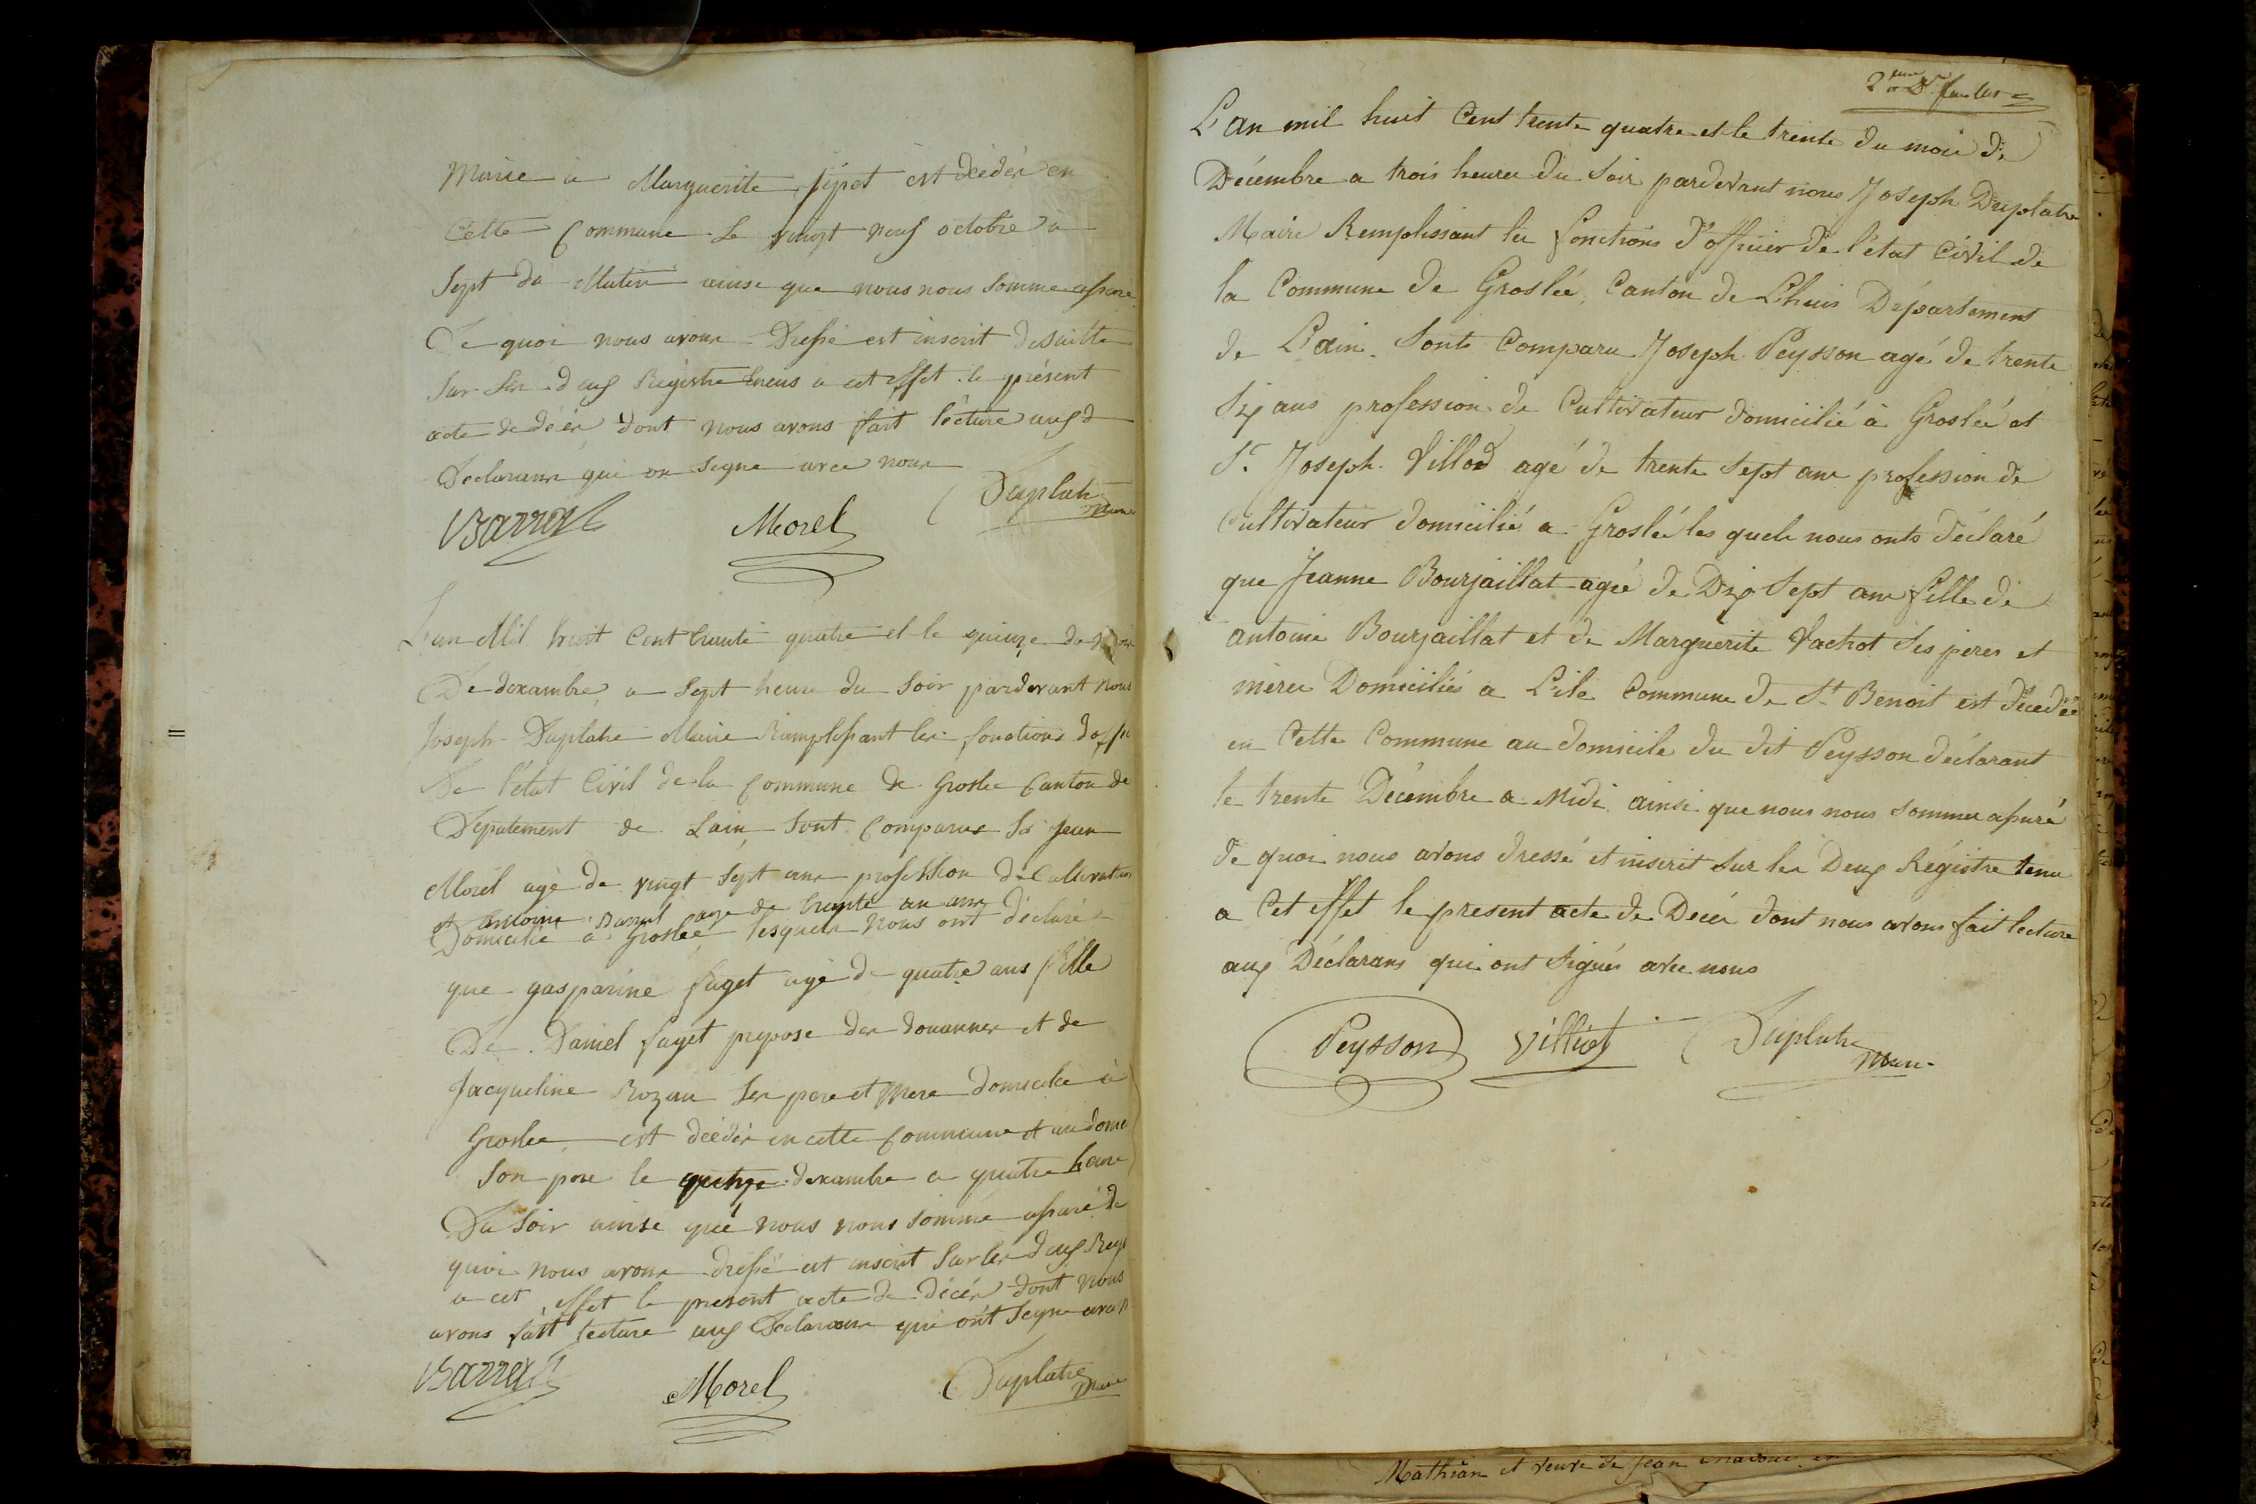 Marié à Marguerite est décédér en
Cette Commune Le vingt neuf octobre a
Sept du Matin ainse que nous nous Somme assure
De quoi nous avons Dressé est inscrit de Suitte
Sur Les deux Registre tneus a cet effet le présent
acte de décér dont nous avons fait lécture aux d
Declarans qui on Segne avec nous
Barral Morel Duplatre Maire
L'an Mil huit Cent trante quatre et le quinze du mois
De dexambre a Sept heure du Soir pardevant nous
Joseph Duplatre Maire Ramplissant les fonctions
De l'état Civil de la Commune de Groslee Canton de
Depatement de Lain, Sont Comparus Sr Jean
Morel agé de vingt Sept ans profession de Cultivateur
et antoine Barral age de trante un ans
Domicilié a Groslee lesquels nous ont déclaré
que gasparine faget agé de quatre ans fille
De Daniel faget prepose des douannes et de
Jacqueline Rozau Ses pere et Mere domicilié à
Groslee est décédér en cette Commune et au dome
Son pere le quinze dexambre a quatre heure
Du Soir ainse que nous nous Somme assuré de
quoi nous avons dressé est inscrit Sur les deux Reg
a cet effet le présent acte de décér dont nous
avons fait lecture aux Declarans qui ont Segne avec n
Barral Morel Duplatre Maire
L'an mil huit Cent trente quatre et le trente du mois de
Décembre a trois heures du Soir pardevant nous Joseph Duplatre
Maire Remplissant les fonctions d'officier de l'état Civil de
la Commune de Groslée, Canton de Lhuis Département
de L'ain. Sont Comparu Joseph Peysson agé de trente
Six ans profession de Cultivateur domicilié à Groslée et
Sr Joseph Villiod agé de trente Sept ans profession de
Cultivateur domicilié a Groslée les quels nous onts déclaré
que Jeanne Bourjaillat agée de Dix Sept ans fille de
antoine Bourjaillat et de Marguerite Vachot Ses pères et
mères Domiciliés a L'ile Commune de St Benoit est décedée
en Cette Commune au domicile du dit Peysson déclarant
le trente Décembre a Midi ainsi que nous nous Sommes assuré
de quoi nous avons dressé et inscrit Sur les Deux Régistre tenu
a Cet effet le présent acte de Décés dont nous avons fait lecture
aux Déclarans qui ont Signés avec nous
Peysson Villiod Duplatre Maire
Mathian et veuve de Jean